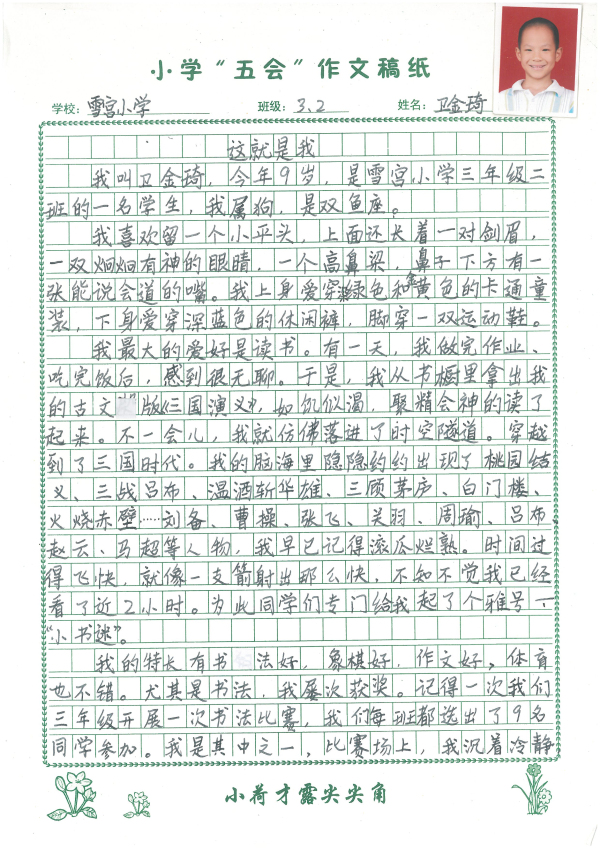 小学“五会”作文稿纸
学校：雪宫小学 班级：3.2 姓名：卫金琦
这就是我
我叫卫金琦，今年9岁，是雪宫小学三年级二
班的一名学生，我属狗，是双鱼座。
我喜欢留一个小平头，上面还长着一对剑眉，
一双炯炯有神的眼睛，一个高鼻梁，鼻子下方有一
张能说会道的嘴。我上身爱穿绿色和金黄色的卡通童
装，下身爱穿深蓝色的休闲裤，脚穿一双运动鞋。
我最大的爱好是读书。有一天，我做完作业、
吃完饭后，感到很无聊。于是，我从书橱里拿出我
的古文版《三国演义》，如饥似渴，聚精会神的读了
起来。不一会儿，我就仿佛落进了时空隧道。穿越
到了三国时代。我的脑海里隐隐约约出现了桃园结
义、三战吕布、温酒斩华雄、三顾茅庐、白门楼、
火烧赤壁……刘备、曹操、张飞、关羽、周瑜、吕布
赵云、马超等人物，我早已记得滚瓜烂熟。时间过
得飞快，就像一支箭射出那么快，不知不觉我已经
看了近2小时。为此同学们专门给我起了个雅号一
“小书迷”。
我的特长有书法好，象棋好，作文好，体育
也不错。尤其是书法，我屡次获奖。记得一次我们
三年级开展一次书法比赛，我们每班都选出了9名
同学参加。我是其中之一，比赛场上，我沉着冷静
小荷才露尖尖角